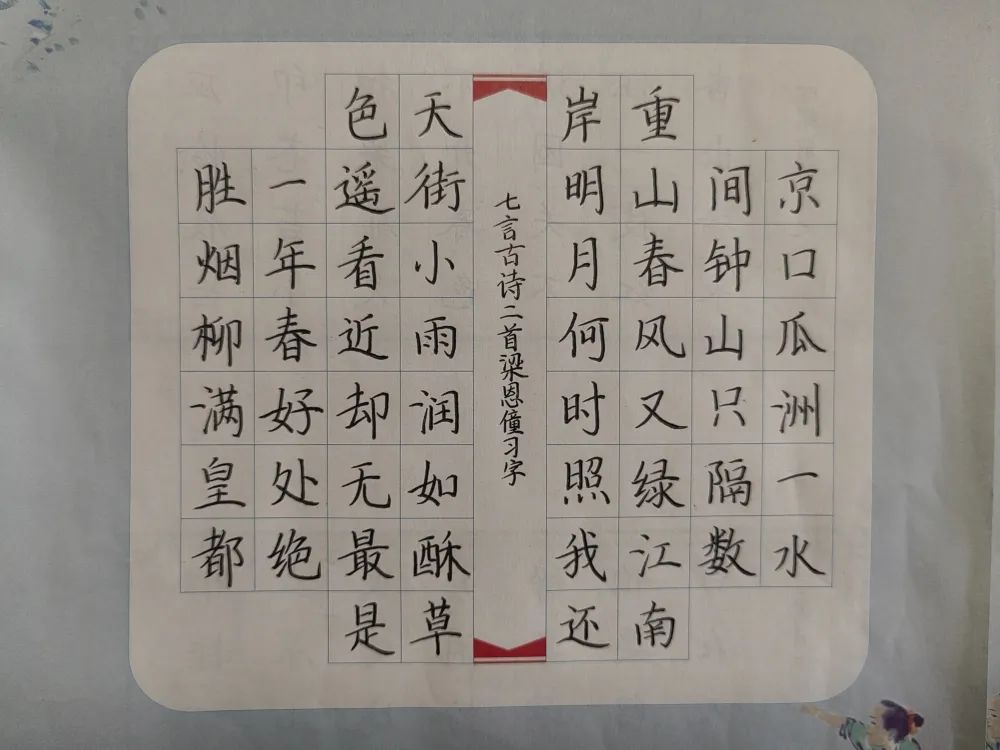 京口瓜洲一水
间钟山只隔数
重山春风又绿江南
岸明月何时照我还
七言古诗二首梁恩僮习字
天街小雨润如酥草
色遥看近却无最是
一年春好处绝
胜烟柳满皇都